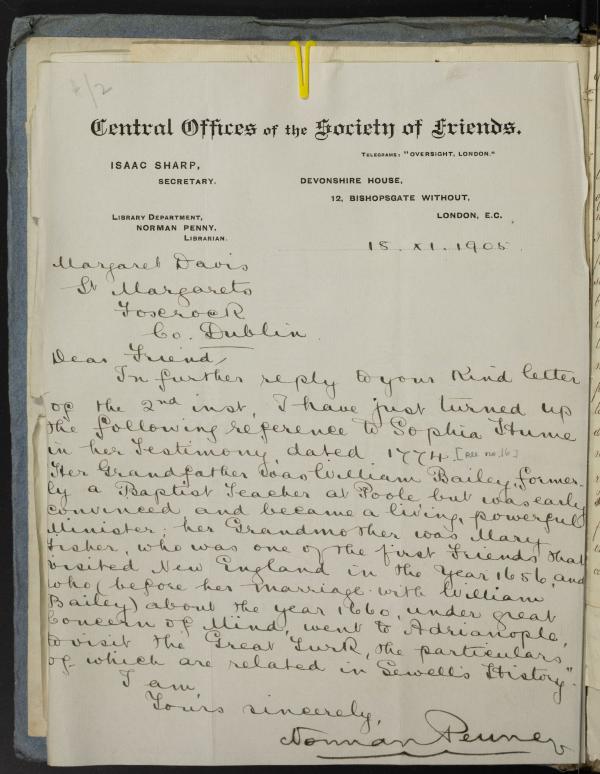 Central Offices of the Society of Friends.
Telegrams: "Oversight, London."
ISAAC SHARP,
SECRETARY.
DEVONSHIRE HOUSE,
12, BISHOPSGATE WITHOUT,
LONDON, E.C.
Library Department,
NORMAN PENNY,
Librarian.
15. XI. 1905.
Margaret Davis
St Margarets
Foxrock
Co. Dublin
Dear Friend,
In further reply to your kind letter
of the 2nd inst, I have just turned up
the following reference to Sophia Hume
in her Testimony, dated 1774. [see no. 16]
Her Grandfather was William Bailey, former-
ly a Baptist Teacher at Poole but was early
convinced and became a living, powerful
Minister; her Grandmother was Mary
Fisher, who was one of the first Friends that
visited New England in the Year 1656, and
who (before her marriage with William
Bailey) about the year 1660, under great
Concern of Mind, went to Adrianople,
to visit the Great Turk, the particulars
of which are related in Sewell's History".
I am,
Yours sincerely,
Norman Penney